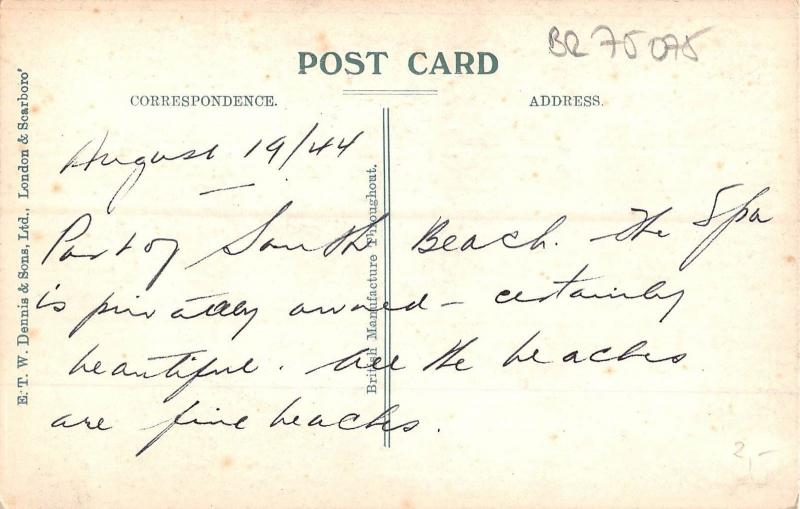 BR 75075
POST CARD
CORRESPONDENCE.
ADDRESS.
August 19/44
Part of South Beach. The Spa
is privately owned – certainly
beautiful. All the beaches
are fine beaches.
E. T. W. Dennis & Sons, Ltd., London & Scarboro'
British Manufacture Throughout.
2,-